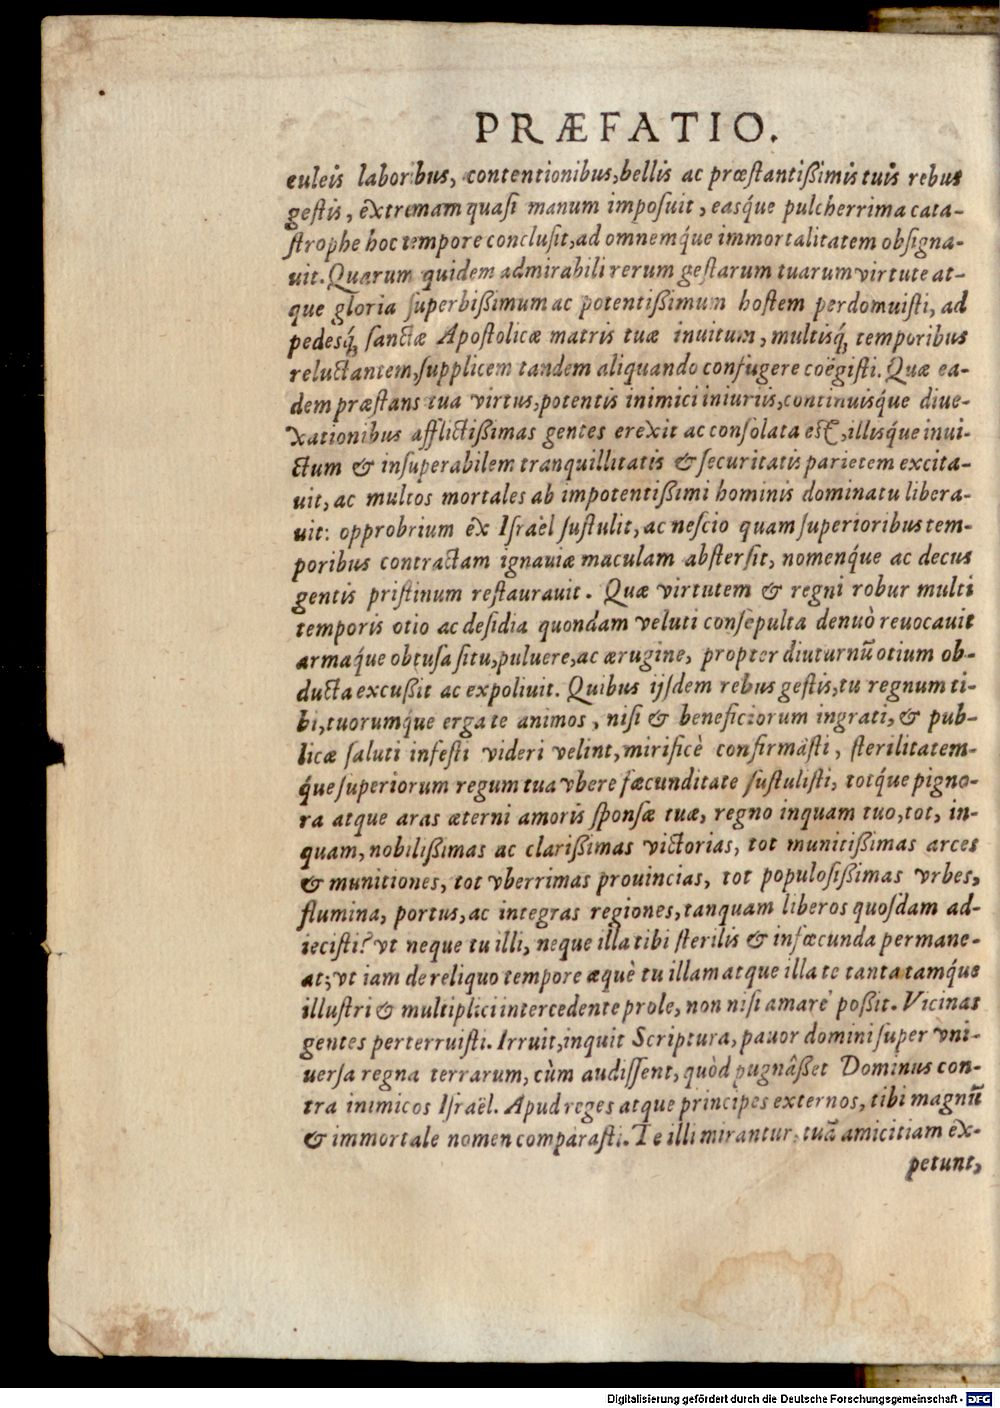 PRÆFATIO.
culeis laboribus, contentionibus, bellis ac præstantißimis tuis rebus
gestis, extremam quasi manum imposuit, easq́ue pulcherrima cata-
strophe hoc tempore conclusit, ad omnemq́ue immortalitatem obsigna-
uit. Quarum quidem admirabili rerum gestarum tuarum virtute at-
que gloria superbißimum ac potentißimum hostem perdomuisti, ad
pedesq́; sanctæ Apostolicæ matris tuæ inuitum, multisq́; temporibus
reluctantem, supplicem tandem aliquando confugere coëgisti. Quæ ea-
dem præstans tua virtus, potentis inimici iniuriis, continuisq́ue diue-
xationibus afflictißimas gentes erexit ac consolata est, illisq́ue inui-
ctum & insuperabilem tranquillitatis & securitatis parietem excita-
uit, ac multos mortales ab impotentißimi hominis dominatu libera-
uit: opprobrium ex Israël sustulit, ac nescio quam superioribus tem-
poribus contractam ignauiæ maculam abstersit, nomenq́ue ac decus
gentis pristinum restaurauit. Quæ virtutem & regni robur multi
temporis otio ac desidia quondam veluti consepulta denuò reuocauit
armaq́ue obtusa situ, puluere, ac ærugine, propter diuturnũ otium ob-
ducta excußit ac expoliuit. Quibus ijsdem rebus gestis, tu regnum ti-
bi, tuorumq́ue erga te animos, nisi & beneficiorum ingrati, & pub-
licæ saluti infesti videri velint, mirificè confirmâsti, sterilitatem-
q́ue superiorum regum tua vbere fæcunditate sustulisti, totq́ue pigno-
ra atque aras æterni amoris sponsæ tuæ, regno inquam tuo, tot, in-
quam, nobilißimas ac clarißimas victorias, tot munitißimas arces
& munitiones, tot vberrimas prouincias, tot populosißimas vrbes,
flumina, portus, ac integras regiones, tanquam liberos quosdam ad-
iecisti? vt neque tu illi, neque illa tibi sterilis & infæcunda permane-
at; vt iam de reliquo tempore æquè tu illam atque illa te tanta tamq́ue
illustri & multiplici intercedente prole, non nisi amare poßit. Vicinas
gentes perterruisti. Irruit, inquit Scriptura, pauor domini super vni-
uersa regna terrarum, cùm audissent, quòd pugnâßet Dominus con-
tra inimicos Israël. Apud reges atque principes externos, tibi magnũ
& immortale nomen comparasti. Te illi mirantur, tuã amicitiam ex-
petunt,
Digitalisierung gefördert durch die Deutsche Forschungsgemeinschaft - DFG